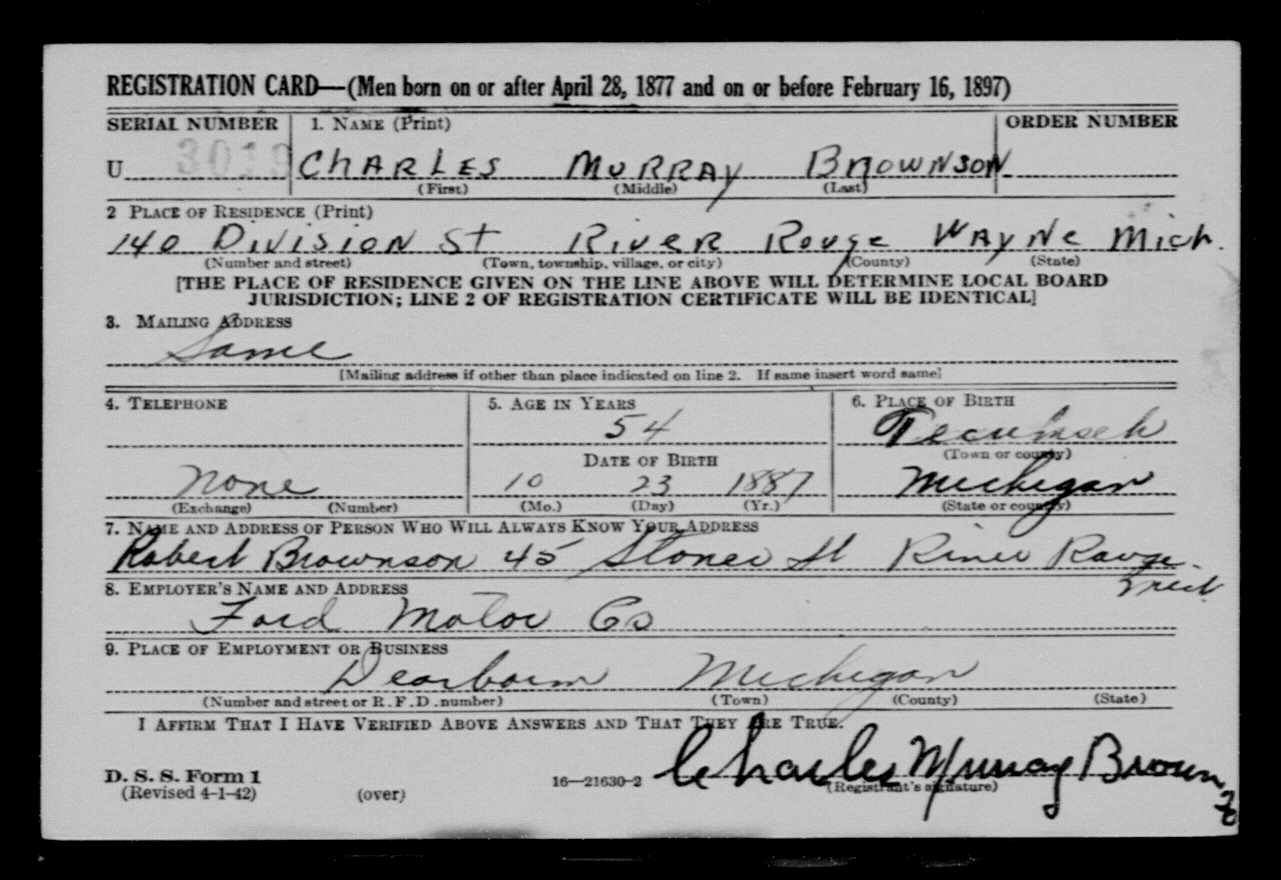 REGISTRATION CARD—(Men born on or after April 28, 1877 and on or before February 16, 1897)
SERIAL NUMBER 1. NAME (Print) ORDER NUMBER
U 3019 CHARLES MURRAY BROWNSON
(First) (Middle) (Last)
2 PLACE OF RESIDENCE (Print)
140 DIVISION St RIVER ROUGE WAYNE Mich.
(Number and street) (Town, township, village, or city) (County) (State)
[THE PLACE OF RESIDENCE GIVEN ON THE LINE ABOVE WILL DETERMINE LOCAL BOARD
JURISDICTION; LINE 2 OF REGISTRATION CERTIFICATE WILL BE IDENTICAL]
3. MAILING ADDRESS
Same
[Mailing address if other than place indicated on line 2. If same insert word same]
4. TELEPHONE 5. AGE IN YEARS 6. PLACE OF BIRTH
54 Tecumseh
DATE OF BIRTH (Town or county)
None 10 23 1887 Michigan
(Exchange) (Number) (Mo.) (Day) (Yr.) (State or country)
7. NAME AND ADDRESS OF PERSON WHO WILL ALWAYS KNOW YOUR ADDRESS
Robert Brownson 45 St River Rouge
Mich
8. EMPLOYER'S NAME AND ADDRESS
Ford Motor Co
9. PLACE OF EMPLOYMENT OR BUSINESS
Dearborn Michigan
(Number and street or R. F. D. number) (Town) (County) (State)
I AFFIRM THAT I HAVE VERIFIED ABOVE ANSWERS AND THAT THEY ARE TRUE.
D. S. S. Form 1
(Revised 4-1-42) (over) 16—21630-2 Charles Murray Brown
(Registrant's signature)